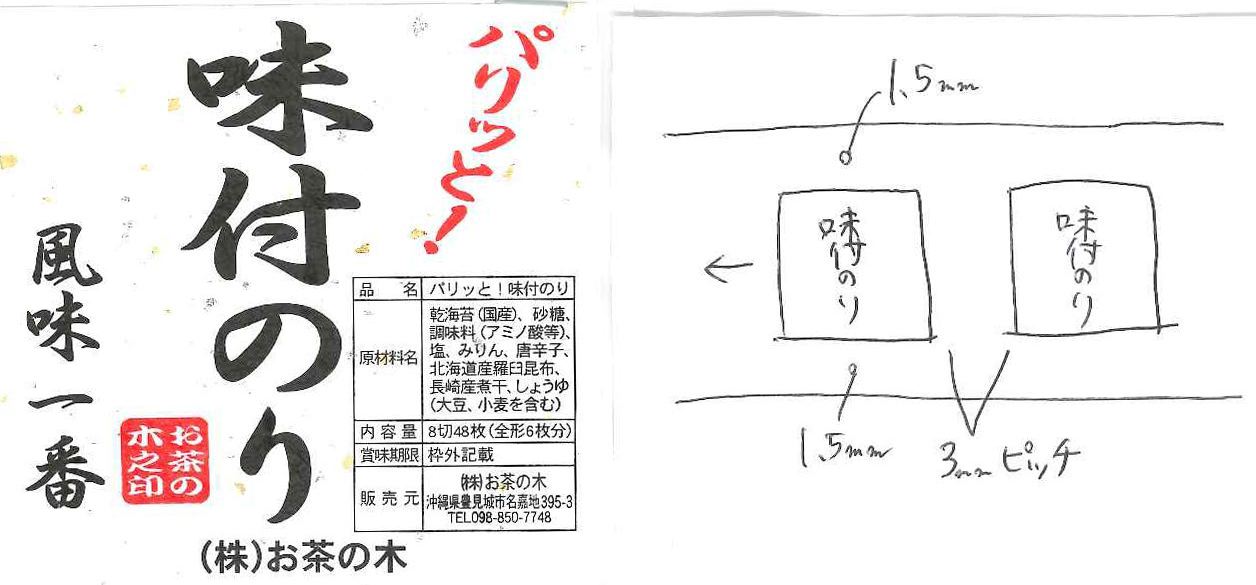 パリッと!
味付のり
風味一番
お茶の
木之印
品名 パリッと!味付のり
原材料名 乾海苔(国産)、砂糖、
調味料(アミノ酸等)、
塩、みりん、唐辛子、
北海道産羅臼昆布、
長崎産煮干、しょうゆ
(大豆、小麦を含む)
内容量 8切48枚(全形6枚分)
賞味期限 枠外記載
販売元 (株)お茶の木
沖縄県豊見城市名嘉地395-3
TEL098-850-7748
(株)お茶の木
1.5mm
味付のり
味付のり
1.5mm
3mmピッチ